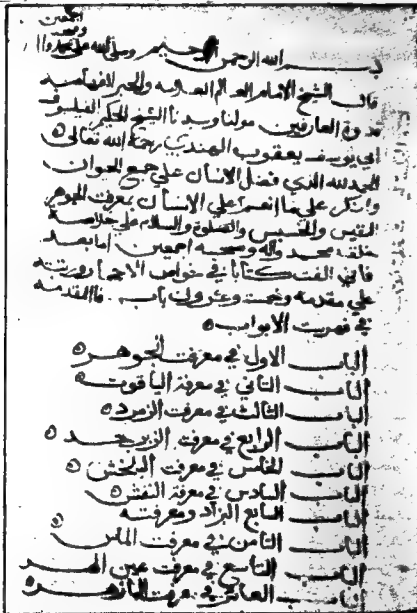 بسم الله الرحمن الرحيم وصلى الله على محمد واله
وصحبه
اجمعين
قال الشيخ الامام العالم العلامه والحبر الفهامه
قدوة العارفين مولنا وسيدنا الشيخ الحكيم الفيلسوف
ابي يوسف يعقوب الهندي رحمة الله تعالى
الحمد لله الذي فضل الانسان علي جميع الحيوان
واشكر علي ما انعم علي الانسان بمعرفت الجوهر
النفيس والخسيس والصلوة والسلام علي خلاصة
خلقه محمد وآله وصحبه اجمعين اما بعد
فاني الفت كتابا في خواص الاحجار ورتبته
علي مقدمه وخمست وعشرون باب فالمقدمه
في فهرست الابواب
الباب الاول في معرفت الجوهر
الباب الثاني في معرفة الياقوت
الباب الثالث في معرفت الزمرد
الباب الرابع في معرفت الزبرجد
الباب الخامس في معرفت البلخش
الباب السادس في معرفة البنفش
الباب السابع ومعرفته
الباب الثامن في معرفت الماس
الباب التاسع في معرفت عين الهر
الباب العاشر في معرفت البازهر